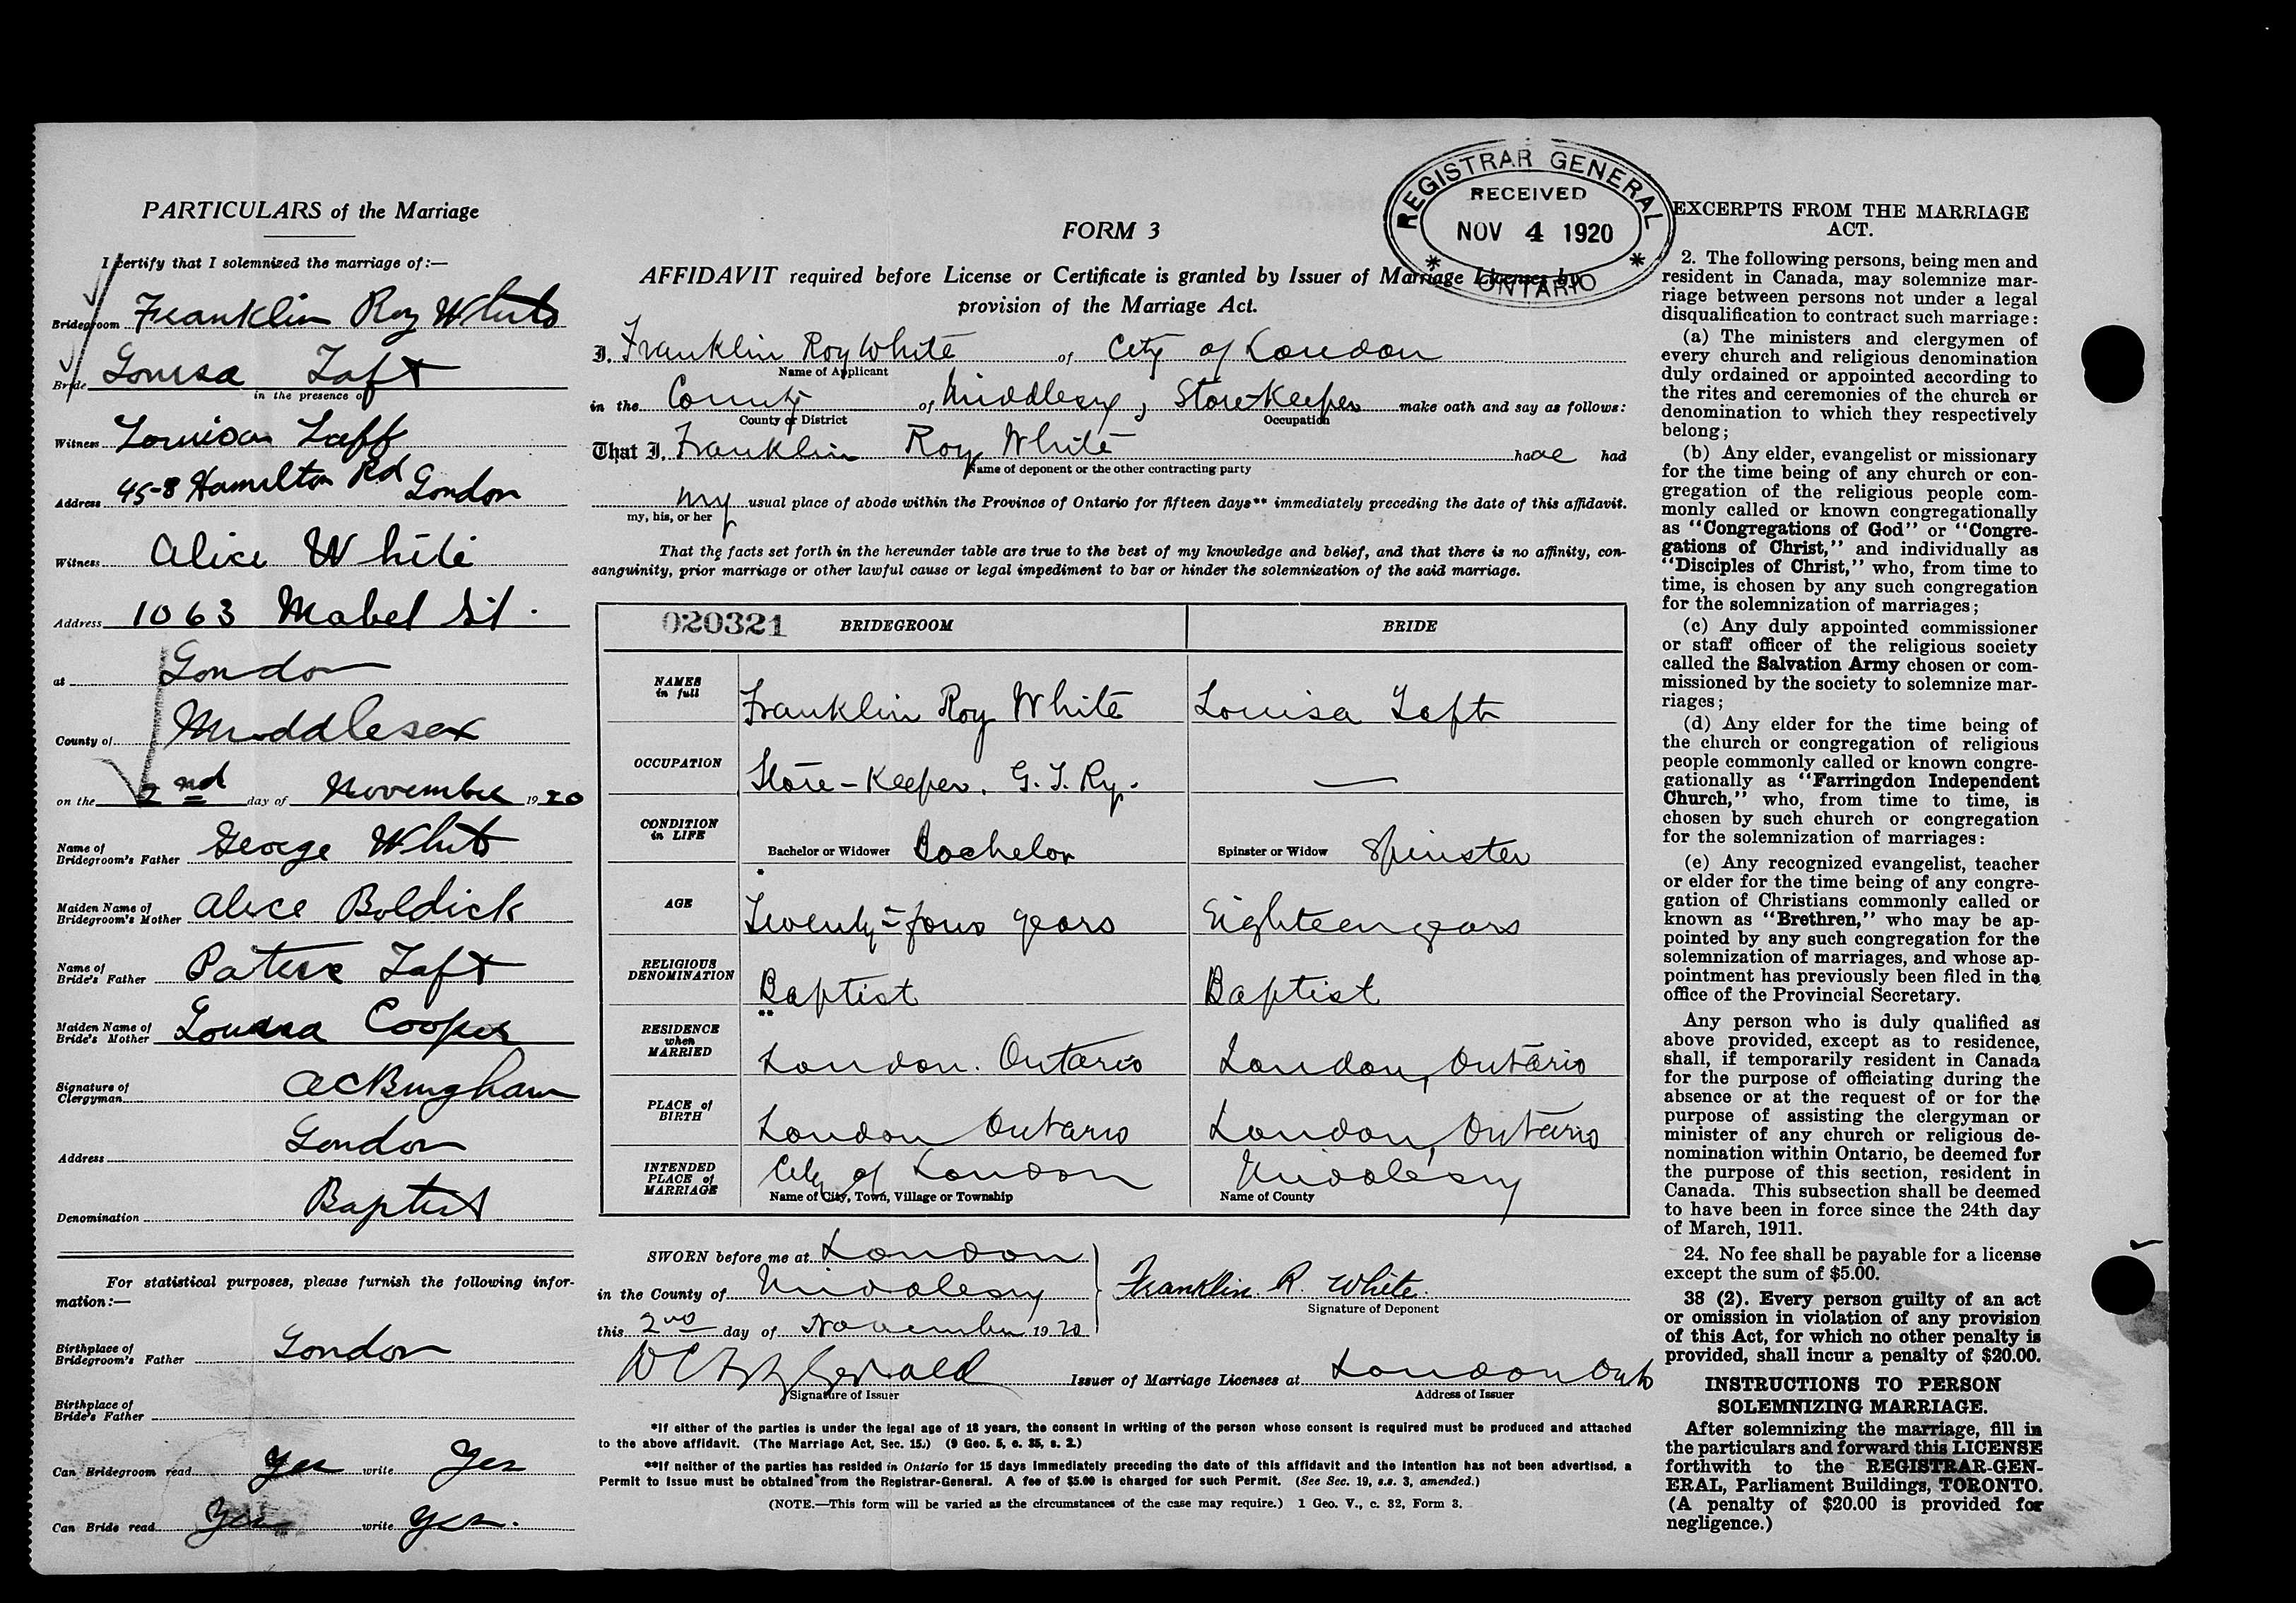 PARTICULARS of the Marriage
I certify that I solemnized the marriage of:—
Bridegroom Franklin Roy White
Bride Louisa Taft
in the presence of
Witness Louisa Taff
Address 458 Hamilton Rd London
Witness Alice White
Address 1063 Mabel St.
at London
County of Middlesex
on the 2nd day of November 1920
Name of Bridegroom's Father George White
Maiden Name of Bridegroom's Mother Alice Boldick
Name of Bride's Father Taft
Maiden Name of Bride's Mother Louisa Cooper
Signature of Clergyman A C Bingham
Address London
Denomination Baptist
For statistical purposes, please furnish the following infor-
mation:—
Birthplace of Bridegroom's Father London
Birthplace of Bride's Father
Can Bridegroom read Yes write Yes
Can Bride read Yes write Yes.
REGISTRAR GENERAL
RECEIVED
NOV 4 1920
* ONTARIO *
FORM 3
AFFIDAVIT required before License or Certificate is granted by Issuer of Marriage Licenses by
provision of the Marriage Act.
I, Franklin Roy White of City of London
Name of Applicant
in the County of Middlesex, Store-Keeper make oath and say as follows:
County or District Occupation
That I, Franklin Roy White have had
Name of deponent or the other contracting party
my usual place of abode within the Province of Ontario for fifteen days** immediately preceding the date of this affidavit.
my, his, or her
That the facts set forth in the hereunder table are true to the best of my knowledge and belief, and that there is no affinity, con-
sanguinity, prior marriage or other lawful cause or legal impediment to bar or hinder the solemnization of the said marriage.
020321 BRIDEGROOM BRIDE
NAMES in full Franklin Roy White Louisa Taft
OCCUPATION Store-Keeper. G. T. Ry. —
CONDITION in LIFE Bachelor or Widower Bachelor Spinster or Widow Spinster
* AGE Twenty-four years Eighteen years
RELIGIOUS DENOMINATION Baptist Baptist
** RESIDENCE when MARRIED London. Ontario London, Ontario
PLACE of BIRTH London Ontario London, Ontario
INTENDED PLACE of MARRIAGE City of London Middlesex
Name of City, Town, Village or Township Name of County
SWORN before me at London
in the County of Middlesex Franklin R. White.
Signature of Deponent
this 2nd day of November 1920
W C Fitzgerald Issuer of Marriage Licenses at London Ont
Signature of Issuer Address of Issuer
*If either of the parties is under the legal age of 18 years, the consent in writing of the person whose consent is required must be produced and attached
to the above affidavit. (The Marriage Act, Sec. 15.) (9 Geo. 5, c. 35, s. 2.)
**If neither of the parties has resided in Ontario for 15 days immediately preceding the date of this affidavit and the intention has not been advertised, a
Permit to issue must be obtained from the Registrar-General. A fee of $5.00 is charged for such Permit. (See Sec. 19, s.s. 3, amended.)
(NOTE.—This form will be varied as the circumstances of the case may require.) 1 Geo. V., c. 32, Form 3.
EXCERPTS FROM THE MARRIAGE
ACT.
2. The following persons, being men and
resident in Canada, may solemnize mar-
riage between persons not under a legal
disqualification to contract such marriage:
(a) The ministers and clergymen of
every church and religious denomination
duly ordained or appointed according to
the rites and ceremonies of the church or
denomination to which they respectively
belong;
(b) Any elder, evangelist or missionary
for the time being of any church or con-
gregation of the religious people com-
monly called or known congregationally
as "Congregations of God" or "Congre-
gations of Christ," and individually as
"Disciples of Christ," who, from time to
time, is chosen by any such congregation
for the solemnization of marriages;
(c) Any duly appointed commissioner
or staff officer of the religious society
called the Salvation Army chosen or com-
missioned by the society to solemnize mar-
riages;
(d) Any elder for the time being of
the church or congregation of religious
people commonly called or known congre-
gationally as "Farringdon Independent
Church," who, from time to time, is
chosen by such church or congregation
for the solemnization of marriages:
(e) Any recognized evangelist, teacher
or elder for the time being of any congre-
gation of Christians commonly called or
known as "Brethren," who may be ap-
pointed by any such congregation for the
solemnization of marriages, and whose ap-
pointment has previously been filed in the
office of the Provincial Secretary.
Any person who is duly qualified as
above provided, except as to residence,
shall, if temporarily resident in Canada
for the purpose of officiating during the
absence or at the request of or for the
purpose of assisting the clergyman or
minister of any church or religious de-
nomination within Ontario, be deemed for
the purpose of this section, resident in
Canada. This subsection shall be deemed
to have been in force since the 24th day
of March, 1911.
24. No fee shall be payable for a license
except the sum of $5.00.
38 (2). Every person guilty of an act
or omission in violation of any provision
of this Act, for which no other penalty is
provided, shall incur a penalty of $20.00.
INSTRUCTIONS TO PERSON
SOLEMNIZING MARRIAGE.
After solemnizing the marriage, fill in
the particulars and forward this LICENSE
forthwith to the REGISTRAR-GEN-
ERAL, Parliament Buildings, TORONTO.
(A penalty of $20.00 is provided for
negligence.)